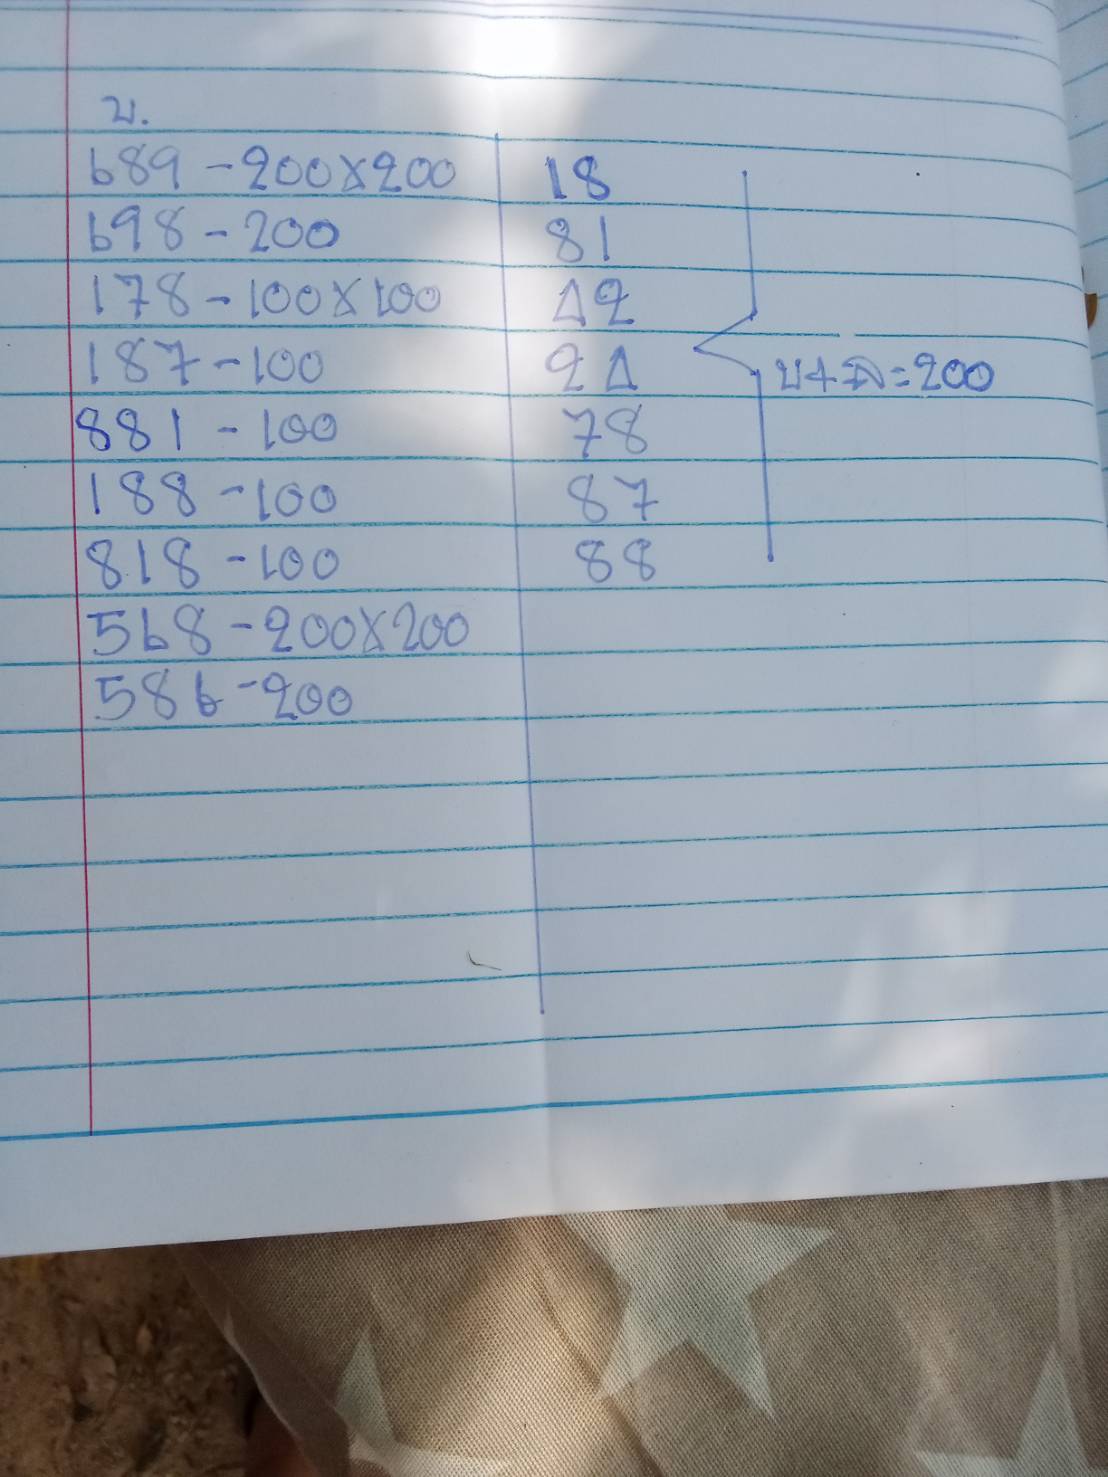 บ.
689-200x200
698-200
178-100x100
187-100
881-100
188-100
818-100
568-200x200
586-200
18
81
42
24
78
87
88
บ+ล=200